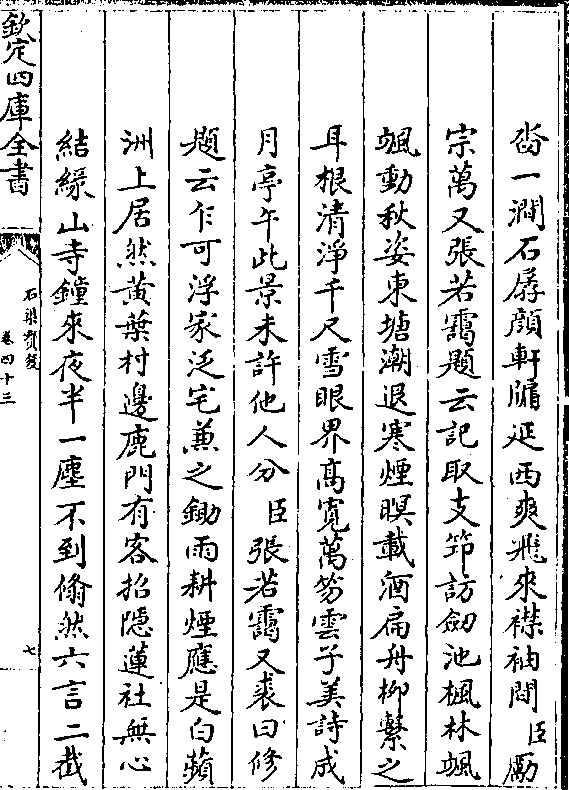 沓一澗石孱顔軒牖延西爽飛來襟袖間 臣勵
宗萬又張若靄題云記取支笻訪劒池楓林颯
颯動秋姿東塘潮退寒煙暝載酒扁舟柳繫之
耳根清淨千尺雪眼界高寛萬笏雲子美詩成
月亭午此景未許他人分 臣張若靄又裘曰修
題云乍可浮家泛宅兼之鋤雨耕煙應是白蘋
洲上居然黄葉村邊鹿門有客招隠蓮社無心
結緣山寺鐘來夜半一塵不到翛然六言二截
欽定四庫全書
石渠寳笈
卷四十三
七